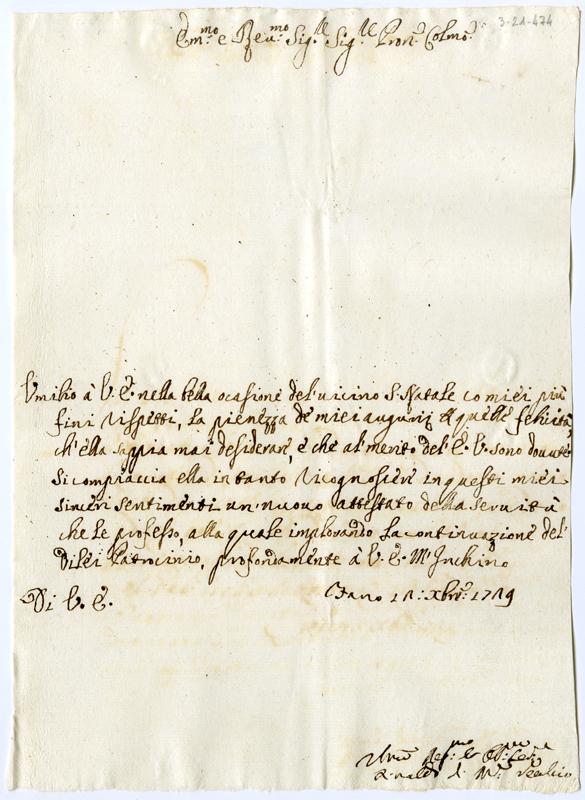 3-21-474
Em.mo e Reu.mo Sig.r Sig.r Pron.e Colmo.
Vmilio à V. E. nella bella ocasione del uicino S. Natale co miei più
fini Rispetti, la pienezza de miei augurij di quelle felicità,
ch'ella sappia mai desiderare, e che al merito dell'E. V. sono douute
Si compiaccia ella intanto Ricognoscere in questi miei
sinceri sentimenti un nuouo attestato della seruitù
che le professo, alla quale implorando la continuazione del
Dilei Patrocinio, profondamente à V. E. M'Inchino
Di V. E.
Fano 11: Xbre: 1719